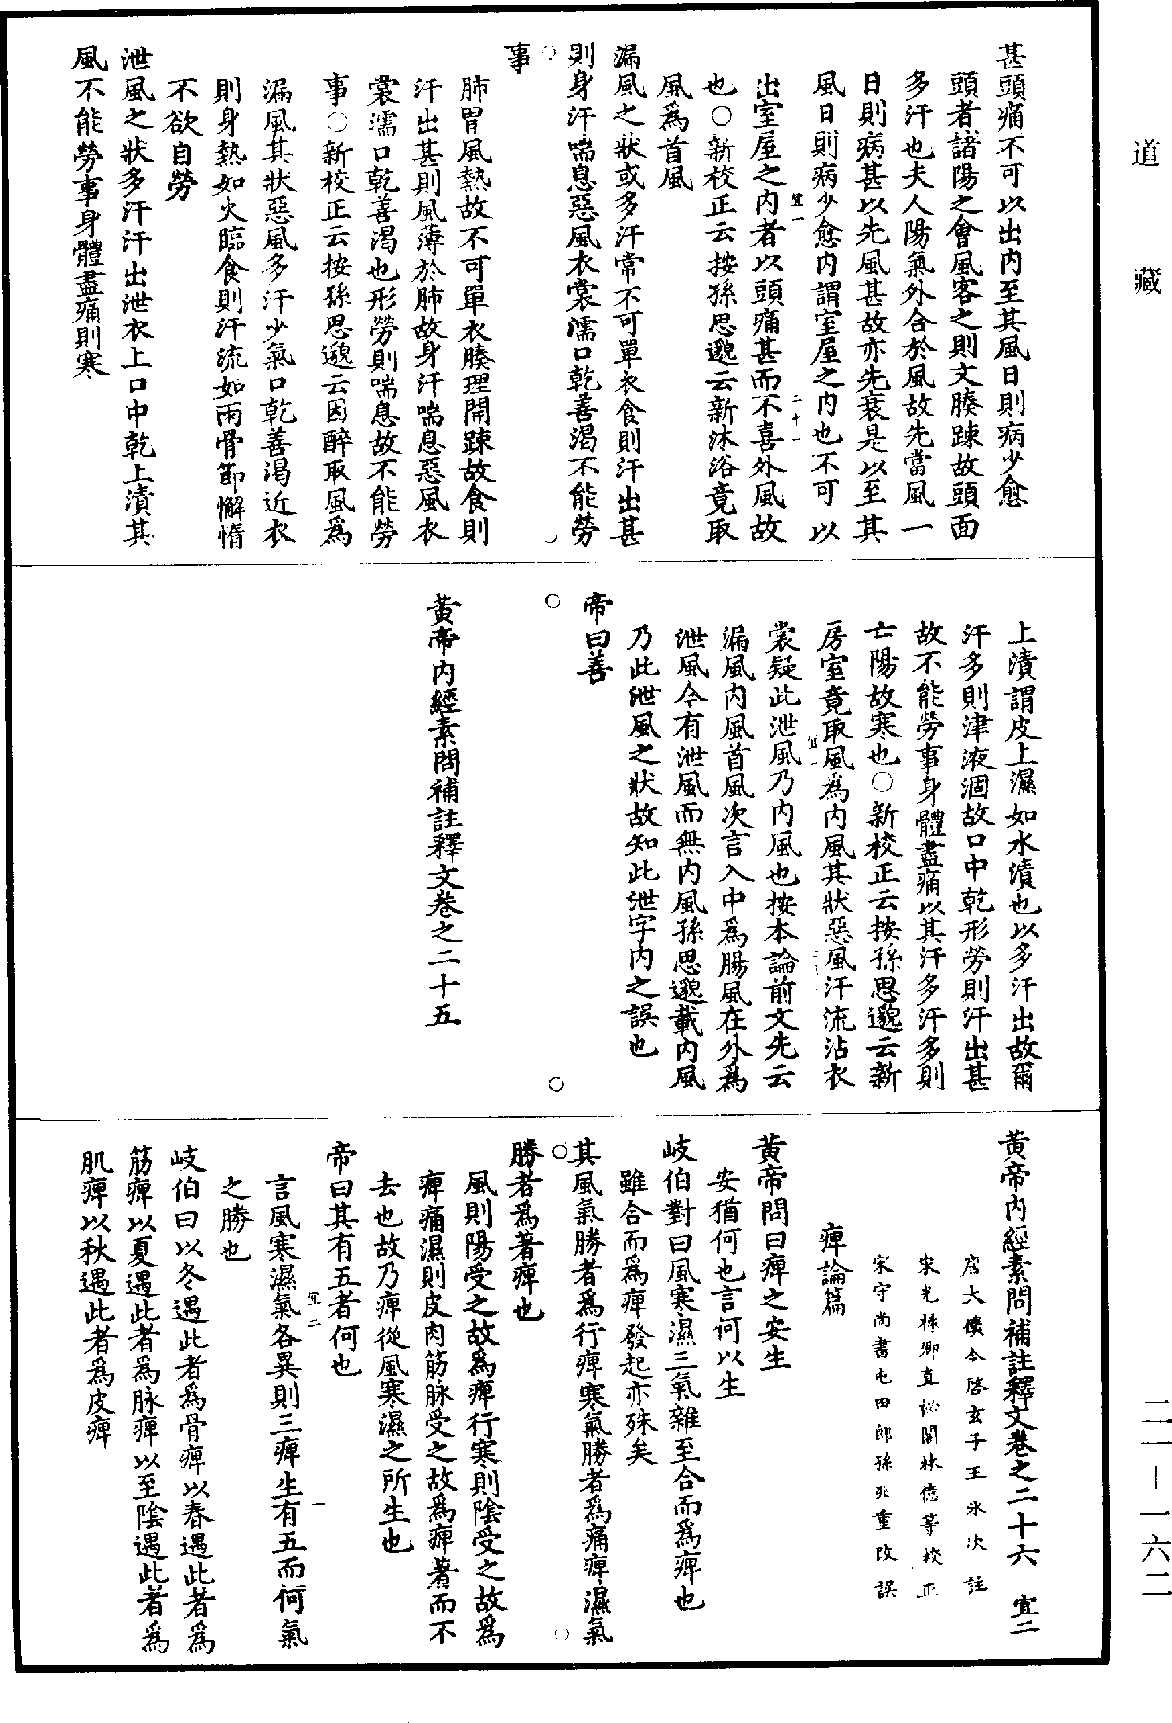 道藏
甚頭痛不可以出內至其風日則病少愈
頭者諸陽之會風客之則文腠踈故頭面
多汗也夫人陽氣外合於風故先當風一
日則病甚以先風甚故亦先衰是以至其
風日則病少愈內謂室屋之內也不可以
出室屋之內者以頭痛甚而不喜外風故
也○新校正云按孫思邈云新沐浴竟取
風爲首風
漏風之狀或多汗常不可單衣食則汗出甚
則身汗喘息惡風衣裳濡口乾善渴不能勞
事
肺胃風熱故不可單衣腠理開踈故食則
汗出甚則風薄於肺故身汗喘息惡風衣
裳濡口乾善渴也形勞則喘息故不能勞
事○新校正云按孫思邈云因醉取風爲
漏風其狀惡風多汗少氣口乾善渴近衣
則身熱如火臨食則汗流如雨骨節懈惰
不欲自勞
泄風之狀多汗汗出泄衣上口中乾上漬其
風不能勞事身體盡痛則寒
上漬謂皮上濕如水漬也以多汗出故爾
汗多則津液涸故口中乾形勞則汗出甚
故不能勞事身體盡痛以其汗多汗多則
亡陽故寒也○新校正云按孫思邈云新
房室竟取風爲內風其狀惡風汗流沾衣
裳疑此泄風乃內風也按本論前文先云
漏風內風首風次言入中爲腸風在外爲
泄風今有泄風而無內風孫思邈載內風
乃此泄風之狀故知此泄字內之誤也
帝曰善
黃帝內經素問補註釋文卷之二十五
黃帝內經素問補註釋文卷之二十六 宜二
唐大僕令啓玄子王氷次註
宋光祿卿直祕閣林億等校正
宋守尚書屯田郎孫兆重改誤
痺論篇
黃帝問曰痺之安生
安猶何也言何以生
岐伯對曰風寒濕三氣雜至合而爲痺也
雖合而爲痺發起亦殊矣
其風氣勝者爲行痺寒氣勝者爲痛痺濕氣
勝者爲著痺也
風則陽受之故爲痺行寒則陰受之故爲
痺痛濕則皮肉筋脉受之故爲痺著而不
去也故乃痺從風寒濕之所生也
帝曰其有五者何也
言風寒濕氣各異則三痺生有五而何氣
之勝也
岐伯曰以冬遇此者爲骨痺以春遇此者爲
筋痺以夏遇此者爲脉痺以至陰遇此者爲
肌痺以秋遇此者爲皮痺
二一—一六二